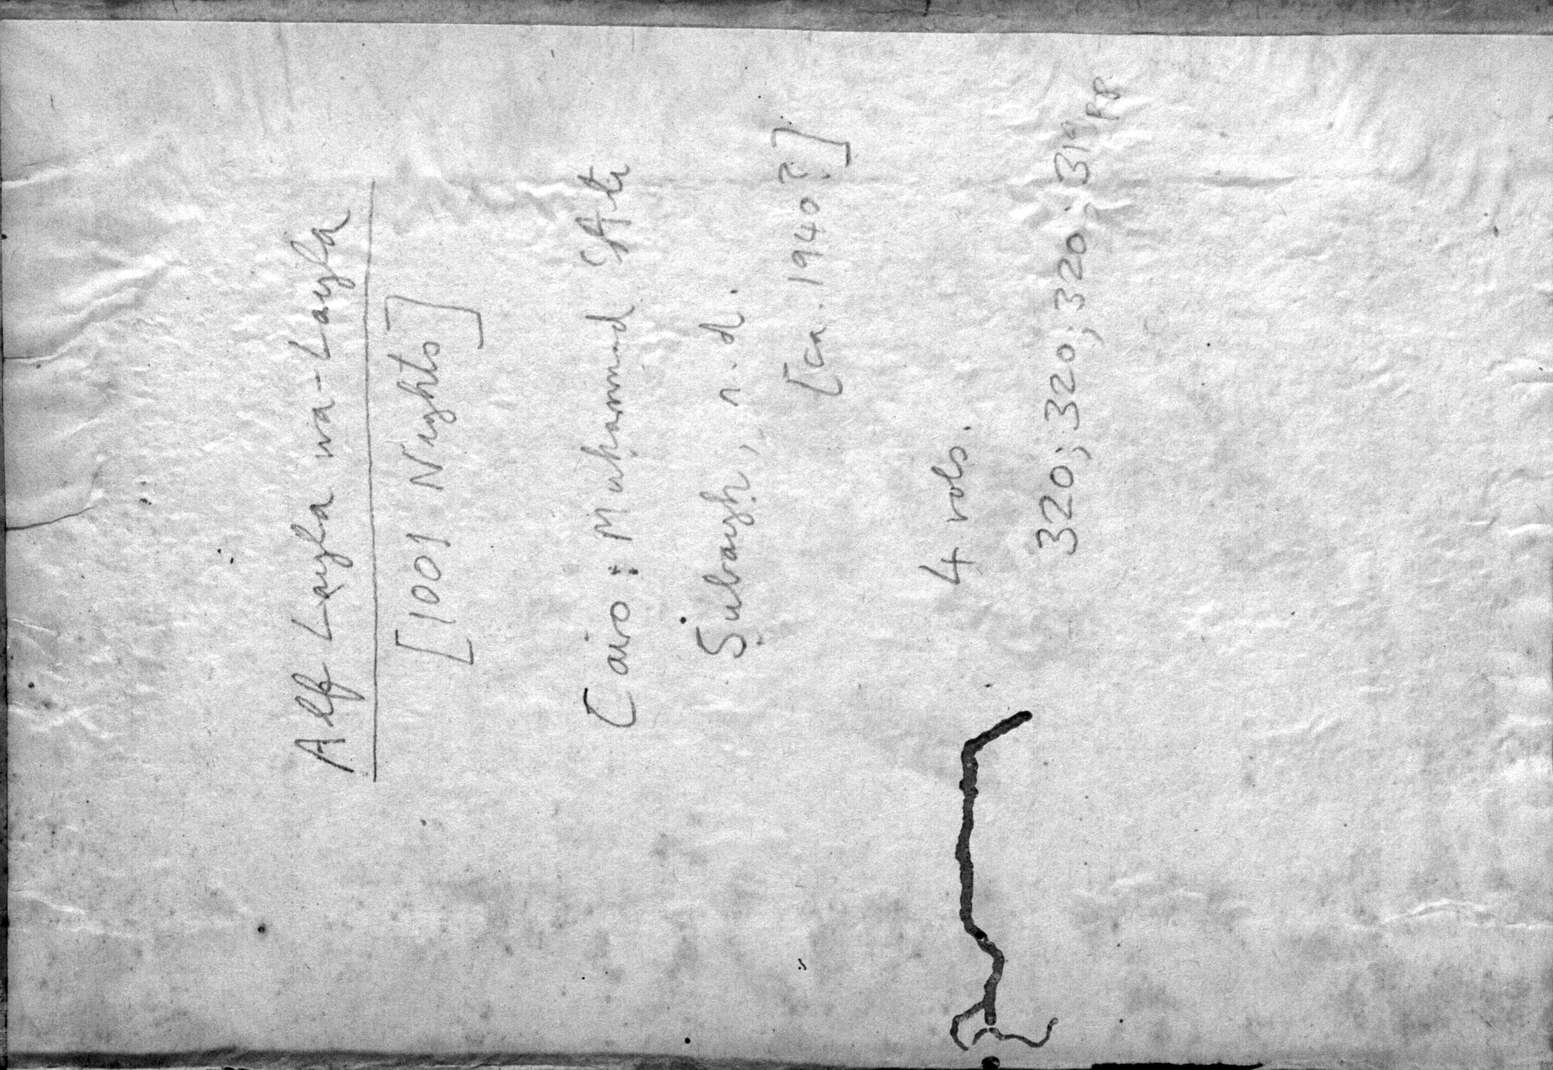 Alf Layla wa-Layla
[1001 Nights]
Cairo: Muḥammad ʿAlī
Ṣubayḥ, n.d.
[ca. 1940?]
4 vols.
320; 320; 320; 319 pp